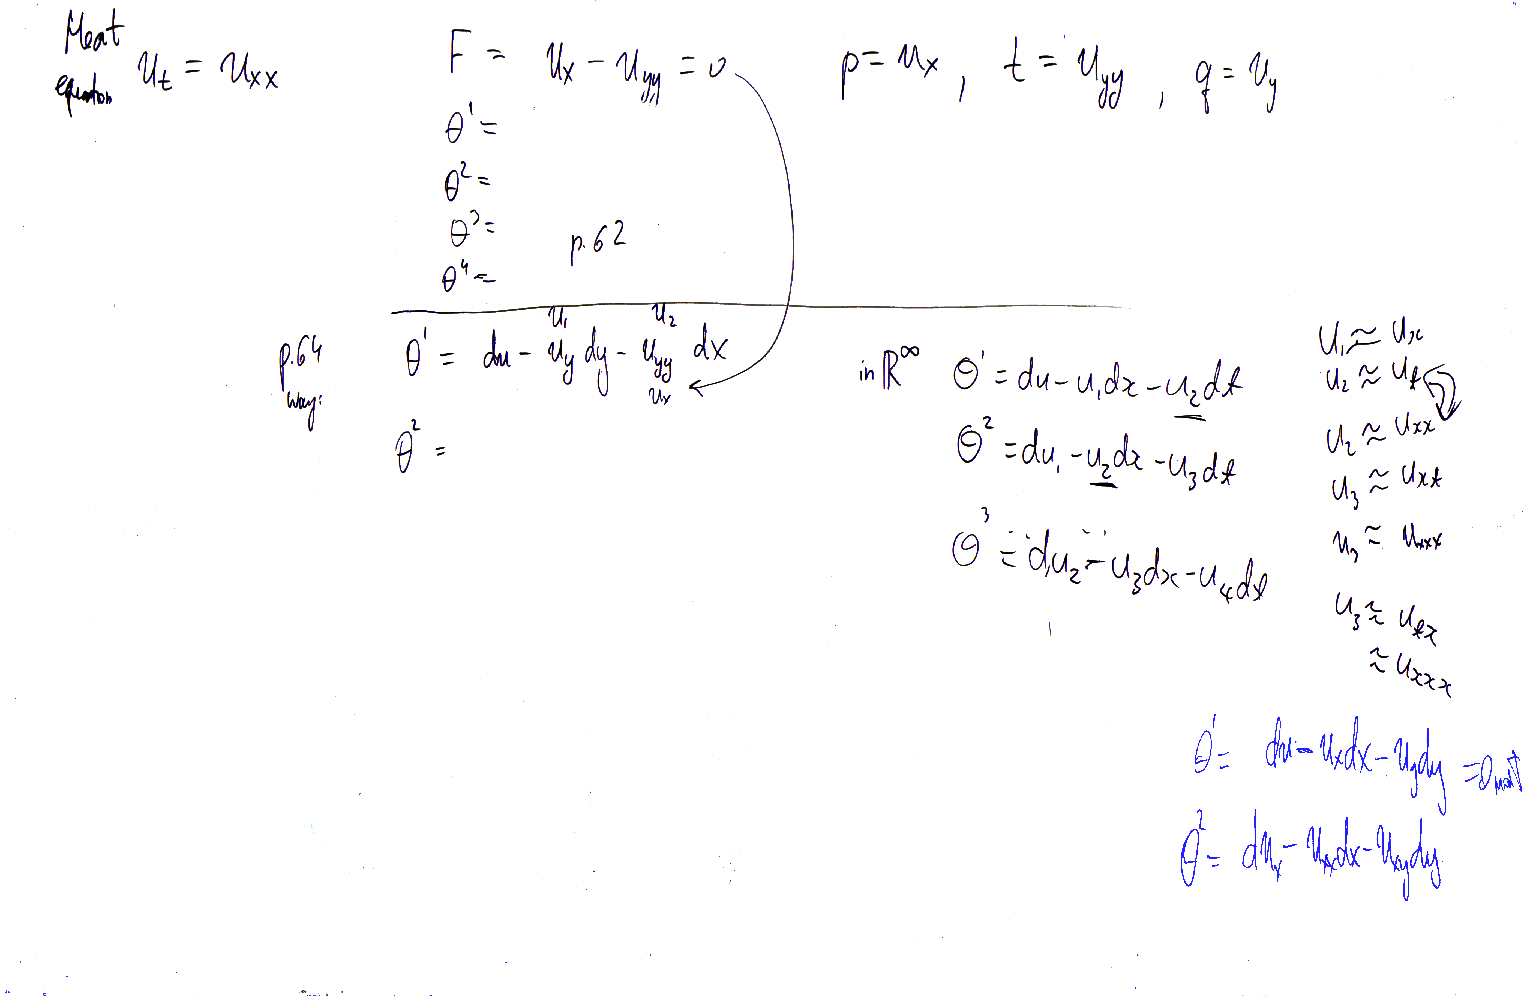 Heat equation u_t = u_xx
F = u_x - u_yy = 0
p = u_x , t = u_yy , q = u_y
θ^1 =
θ^2 =
θ^3 =
p.62
θ^4 =
p.64 way:
θ^1 = du - u_y dy - u_yy dx
u_1 u_2
u_x
θ^2 =
in ℝ^∞ θ^1 = du - u_1 dx - u_2 dt
θ^2 = du_1 - u_2 dx - u_3 dt
θ^3 = du_2 - u_3 dx - u_4 dt
u_1 ≈ u_x
u_2 ≈ u_t
u_2 ≈ u_xx
u_3 ≈ u_xt
u_3 ≈ u_xxx
u_3 ≈ u_tx
≈ u_xxx
θ^1 = du - u_x dx - u_y dy = 0
θ^2 = du_x - u_xx dx - u_xy dy